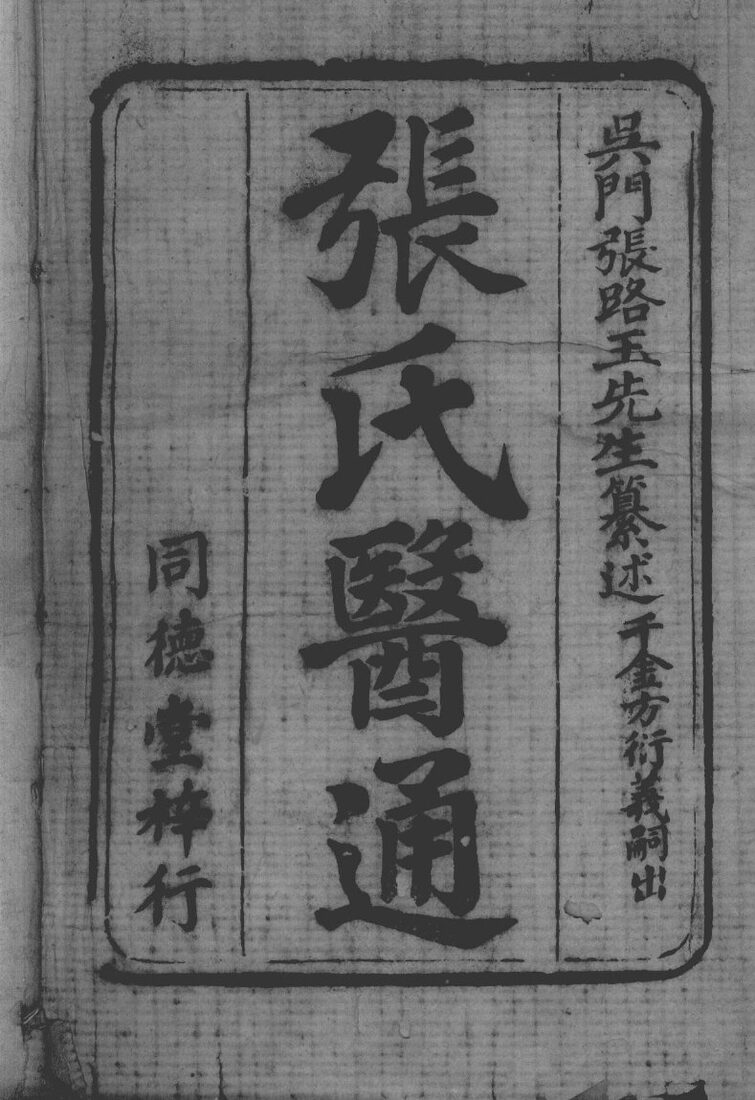 吳門張路玉先生纂述千金方衍義嗣出
張氏醫通
同德堂梓行